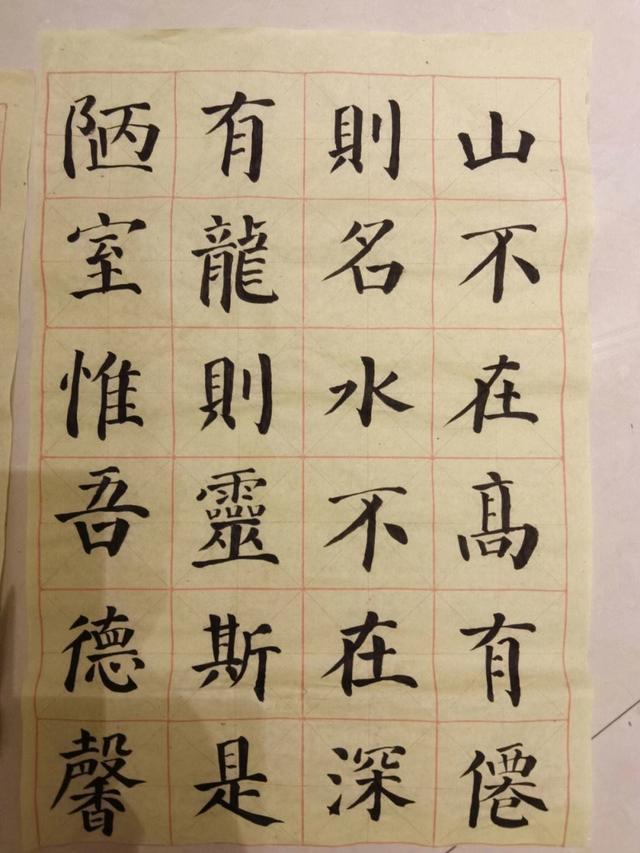 山不在高有僊
則名水不在深
有龍則靈斯是
陋室惟吾德馨